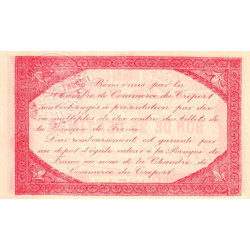 Les Bons émis par la
Chambre de Commerce du Tréport
sont échangés à présentation par des
multiples de dix contre des billets de
la Banque de France
Leur remboursement est garanti par
un dépôt d'égale valeur à la Banque de
France au nom de la Chambre de
Commerce du Tréport.